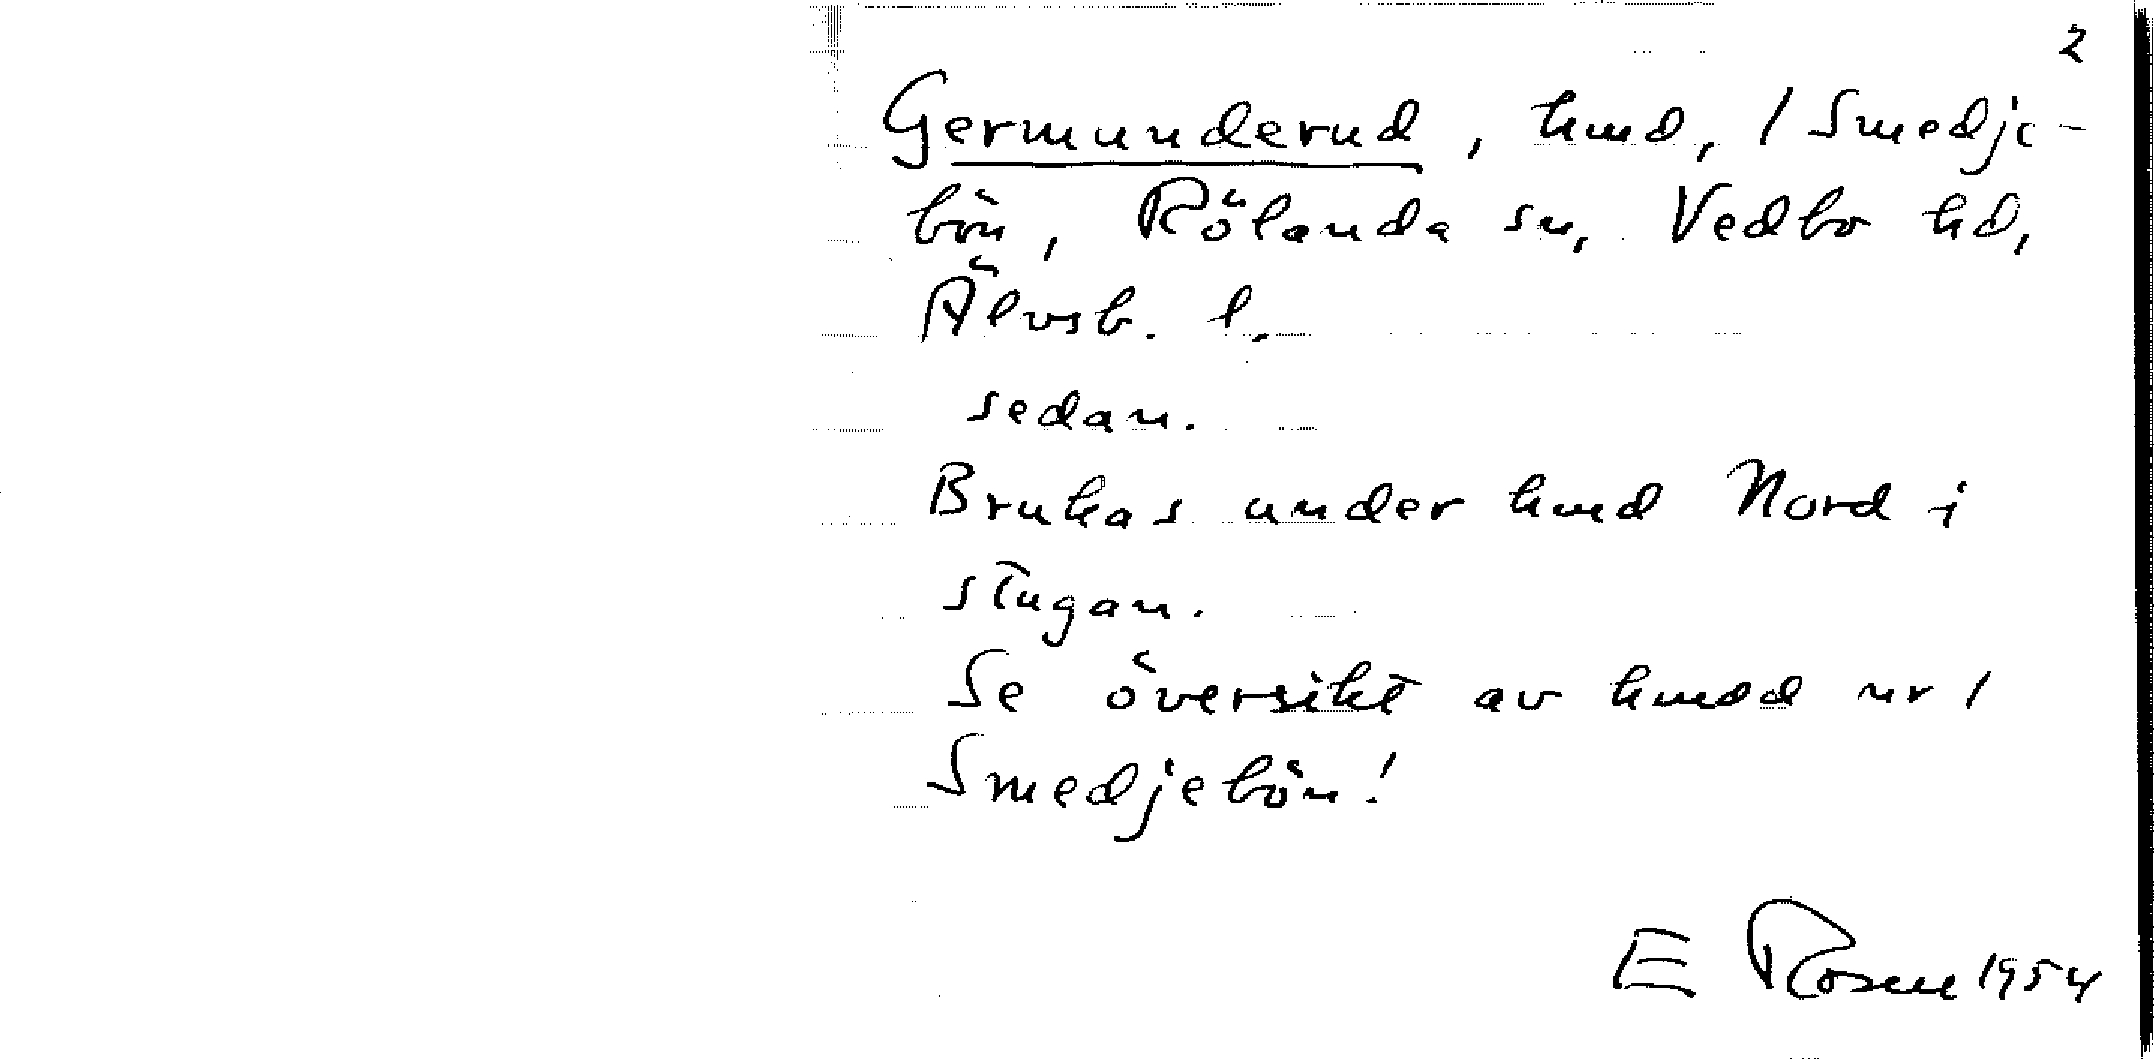 2
Germunderud, hmd, 1 Smedje-
bön, Rölanda sn, Vedbo hd,
Älvsb. l.
sedan.
Brukas under hmd Nord i
stugan.
Se översikt av hmdd nr 1
Smedjebön!
E Rosell 1954